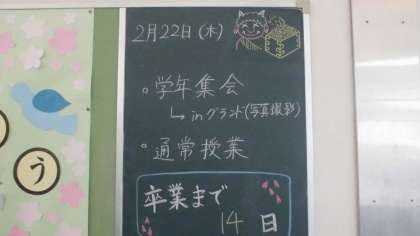 う
2月22日(木)
。学年集会
↳ inグランド(写真撮影)
。通常授業
卒業まで
14日